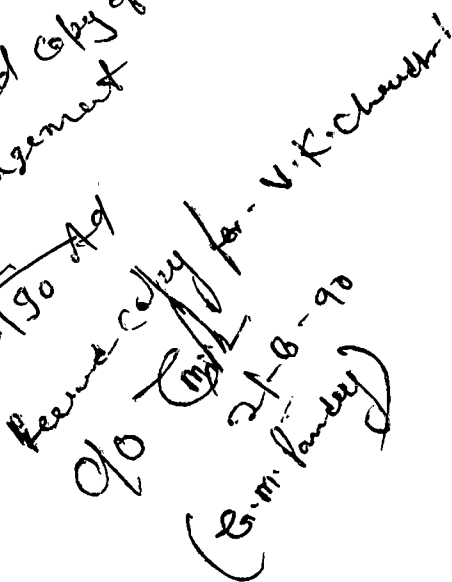 d copy of
gement
90 Ad
Received Copy for - V.K. Chaudhri
21-8-90
(G.M. Pandey)